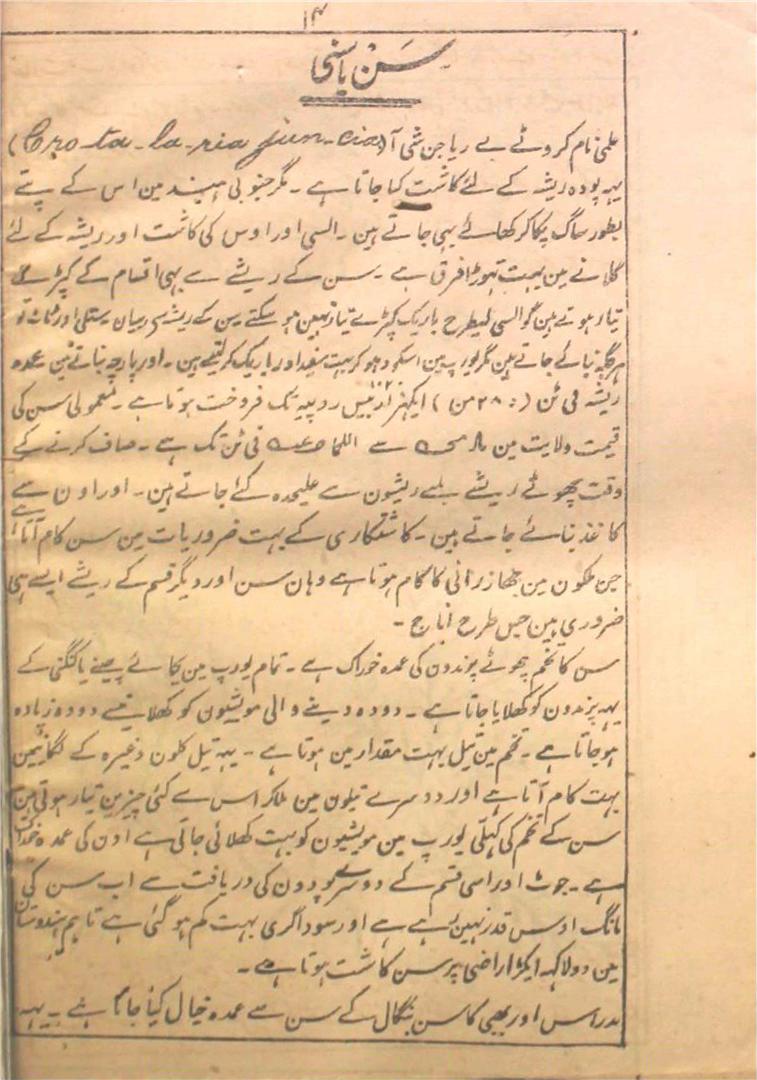 ۱۴
سَن یا سنی
علمی نام کروٹے بے ریا جن شی آ (Cro-ta-la-ria jun-cia)
یہہ پودہ ریشہ کے لئے کاشت کیا جاتا ہے ۔ مگر جنوبی ہند مین اس کے پتے
بطور ساگ پکا کر کھائے بھی جاتے ہین ۔ السی اور اوس کی کاشت اور ریشہ کے لئے
گلانے مین بہت تھوڑا فرق ہے ۔ سن کے ریشے سے بھی اقسام کے کپڑے
تیار ہوتے ہین گو السی کیطرح باریک کپڑے تیار نہین ہو سکتے سن کے ریشہ سے رسیان ستلی اور ٹاٹ تو
ہر جگہ بنائے جاتے ہین مگر یورپ مین اسکو دھو کر بہت سفید اور باریک کر لیتے ہین ۔ اور پارچہ بناتے ہین عمدہ
ریشہ فی ٹن (۲۸ من) روپیہ تک فروخت ہوتا ہے ۔ معمولی سن کی
قیمت ولایت مین سے فی ٹن تک ہے ۔ صاف کرنے کے
وقت چھوٹے ریشے بلمے ریشون سے علیحدہ کئے جاتے ہین ۔ اور اون سے
کاغذ بنائے جاتے ہین ۔ کاشتکاری کے بہت ضروریات مین سن کام آتا ہے
جن ملکون مین جہازرانی کا کام ہوتا ہے وہان سن اور دیگر قسم کے ریشے ایسے ہی
ضروری ہین جس طرح اناج ۔
سن کا تخم چھوٹے پرندون کی عمدہ خوراک ہے ۔ تمام یورپ مین بجائے چینے یا کنگنی کے
یہہ پرندون کو کھلایا جاتا ہے ۔ دودہ دینے والی مویشیون کو کھلانیسے دودہ زیادہ
ہو جاتا ہے ۔ تخم مین تیل بہت مقدار مین ہوتا ہے ۔ یہہ تیل کلون وغیرہ کے لگانیمین
بہت کام آتا ہے اور دوسرے تیلون مین ملا کر اس سے کئی چیزین تیار ہوتی ہین
سن کے تخم کی کہلی یورپ مین مویشیون کو بہت کھلائی جاتی ہے اون کی عمدہ خوراک
ہے ۔ جوٹ اور اسی قسم کے دوسرے پودون کی دریافت سے اب سن کی
مانگ اوس قدر نہین رہی ہے اور سوداگری بہت کم ہو گئی ہے تاہم ہندوستان
مین دو لاکہہ ایکڑ اراضی پر سن کاشت ہوتا ہے ۔
مدراس اور بمبئی کا سن بنگال کے سن سے عمدہ خیال کیا جاتا ہے ۔ یہہ